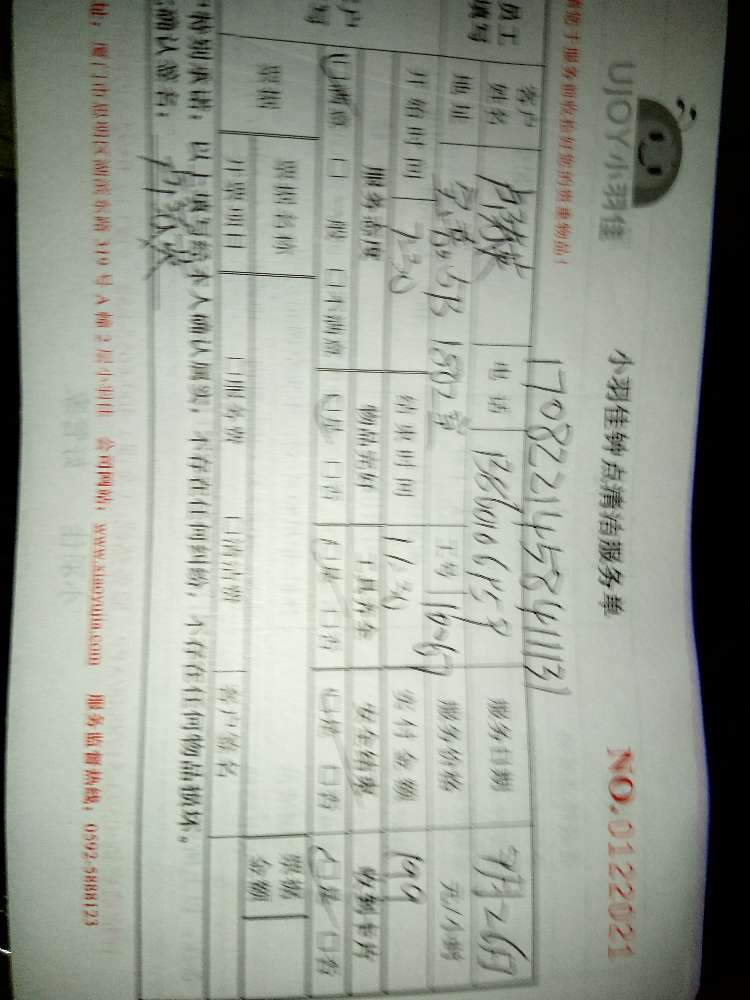 UJOY小羽佳
小羽佳钟点清洁服务单
NO.0122021
17082214584111131
员工填写
客户姓名 电话 服务日期 7月26日
地址 1502室 工号 1606 服务价格 元/小时
开始时间 7:30 结束时间 11:30 实付金额 199
服务态度 物品完好 工具齐全 安全结束 收到卡片
□满意 □一般 □不满意 □是 □否 □是 □否 □是 □否 □是 □否
票据 票据名称 票据金额
开票项目 □服务费 □清洁费 客户签名
特别承诺：以上填写经本人确认属实，不存在任何纠纷，不存在任何物品损坏。
确认签名：
址：厦门市思明区湖滨东路 319 号 A 幢 2 层小羽佳 公司网站：www.xiaoyujia.com 服务监督热线：0592-5888123